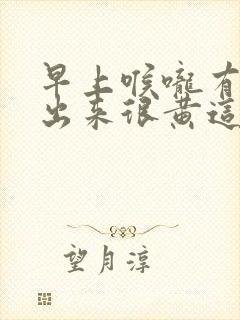 早上喉嚨有
出來很黃這
望月淳